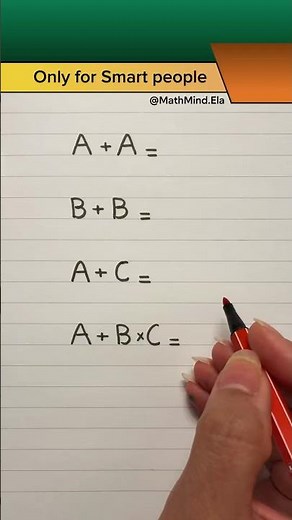 Only for Smart people
@MathMind.Ela
A + A =
B + B =
A + C =
A + B × C =